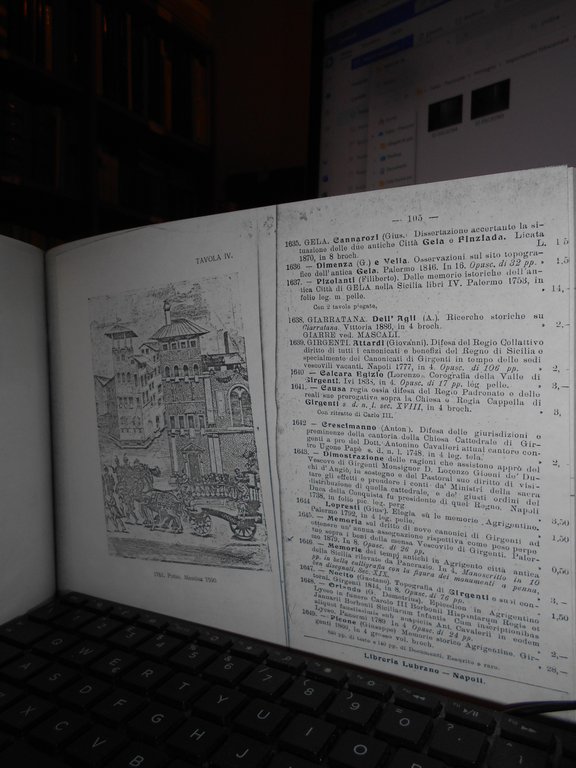 TAVOLA IV.
1781. Pozzo. Messina 1590
— 105 —
1635. GELA. Cannarozi (Gius. Dissertazione accertante la si-
tuazione delle due antiche Città Gela e Finziada. Licata
1870, in 8 broch. L. 1,5
1636 — Dimenza (G.) e Vella. Osservazioni sul sito topogra-
fico dell'antica Gela. Palermo 1846. In 16. Opusc. di 32 pp. » 1,5
1637. — Pizolanti (Filiberto). Delle memorie istoriche dell'an-
tica Città di GELA nella Sicilia libri IV. Palermo 1753, in
folio leg. m pelle. » 14,—
Con 2 tavole piegate,
1638. GIARRATANA. Dell'Agli (A.). Ricerche storiche su
Giarratana. Vittoria 1886, in 4 broch. » 2,—
GIARRE ved. MASCALI.
1639. GIRGENTI. Attardi (Giovanni). Difesa del Regio Collattivo
diritto di tutti i canonicati e benefizi del Regno di Sicilia e
specialmente dei Canonicati di Girgenti in tempo delle sedi
vescovili vacanti. Napoli 1777, in 4. Opusc. di 106 pp. » 2,
1640 — Calcara Egizio (Lorenzo). Corografia della Valle di
Girgenti. Ivi 1838, in 4. Opusc. di 17 pp. leg. pelle. » 3,—
1641. — Causa regia ossia difesa del Regio Padronato e delle
reali sue prerogative sopra la Chiesa o Regia Cappella di
Girgenti s. d. a. l. sec. XVIII, in 4 broch. » 3,
Con ritratto di Carlo III.
1642 — Crescimanno (Anton). Difesa delle giurisdizioni e
preminenze della cantoria della Chiesa Cattedrale di Gir-
genti a pro del Dott. Antonino Cavalieri attual cantore con-
tro Ugone Papè s. d. n. l. 1748, in 4 leg. tola. » 2,
1643. — Dimostrazione delle ragioni che assistono apprò del
Vescovo di Girgenti Monsignor D. Lorenzo Gioeni de' Du-
chi d'Angiò, in sostegno e del Pastoral suo diritto di visi-
tare gli effetti e prendere i conti da' Ministri della sacra
distribuzione di quella cattedrale, e de' giusti ordini del
Duca della Conquista fu presidente di quel Regno. Napoli
1738, in folio pic. leg. perg.
1644 — Lopresti (Gius). Elogia sù le memorie Agrigentine.
Palermo 1792, in 4 leg. pelle. » 3,50
1645. — Memoria sul diritto di nove canonici di Girgenti ad
ottenere un'annua assegnazione rispettiva come peso perpe-
tuo sopra i beni della mensa Vescovile di Girgenti. Paler-
mo 1879. In 8. Opusc. di 26 pp. » 1,50
1646. — Memorie dei tempi antichi in Agrigento città antica
della Sicilia rilevate da Pancrazio. In 4. Manoscritto in 10
pp. in bella calligrafia con la figura dei monumenti a penna,
ben disegnati. Sec. XIX. » 0,50
1647. — Nocito (Gaetano). Topografia di Girgenti e suoi con-
torni. Girgenti 1844, in 8. Opusc. di 76 pp. » 3,—
» 1,50
Palermo 1789 in 4 Opusc. di 24 pp.
1649. — Picone (Giuseppe) Memorie storico Agrigentine. Gir-
genti 1866, in 4 grosso vol. broch. » 2,—
640 pp. di testo e 140 pp. di Documenti. Esaurito e raro. » 28,—
Libreria Lubrano — Napoli.
Q W E R T Y U I O P
A S D F G H J K L
X C V B N M